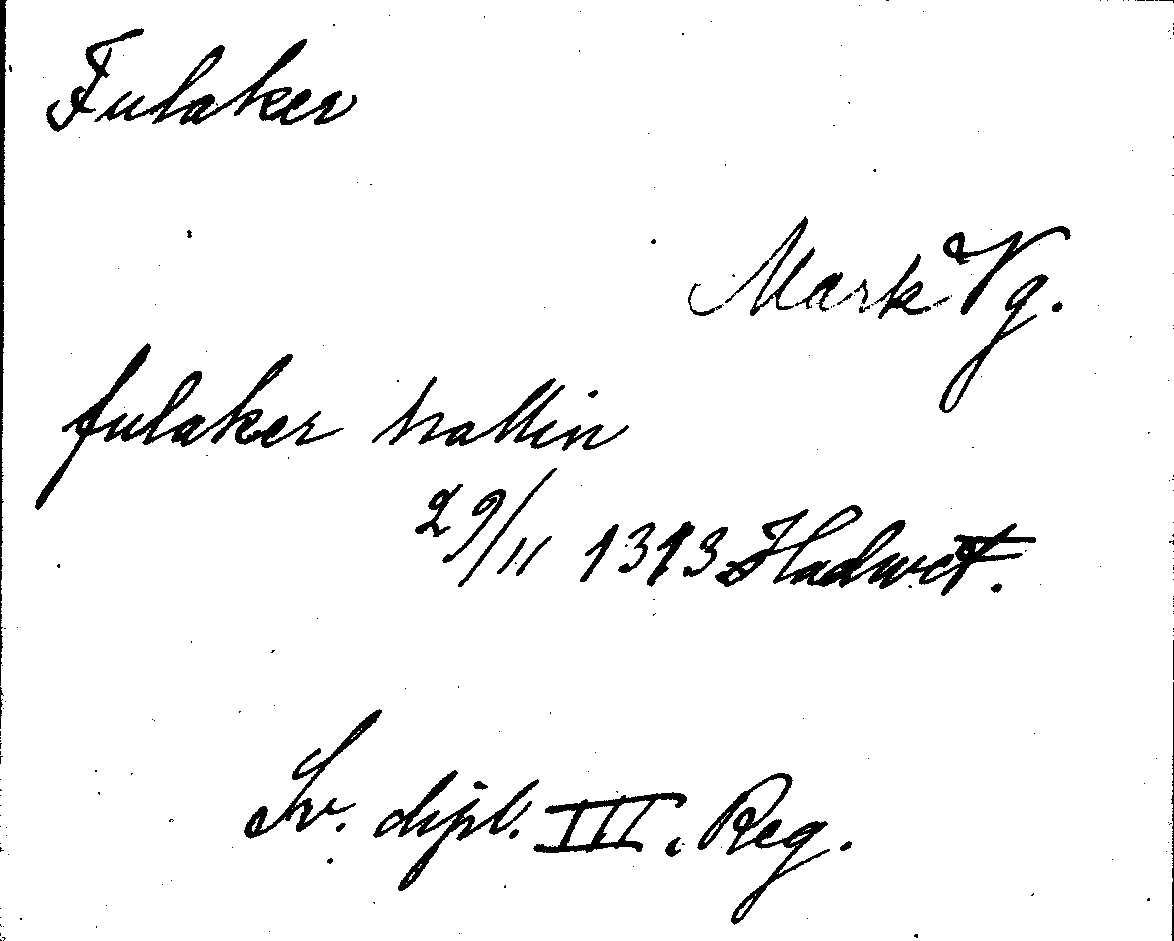 Fulaker
Mark Vg.
fulaker hallin
29/11 1313
Sv. dipl. III. Reg.